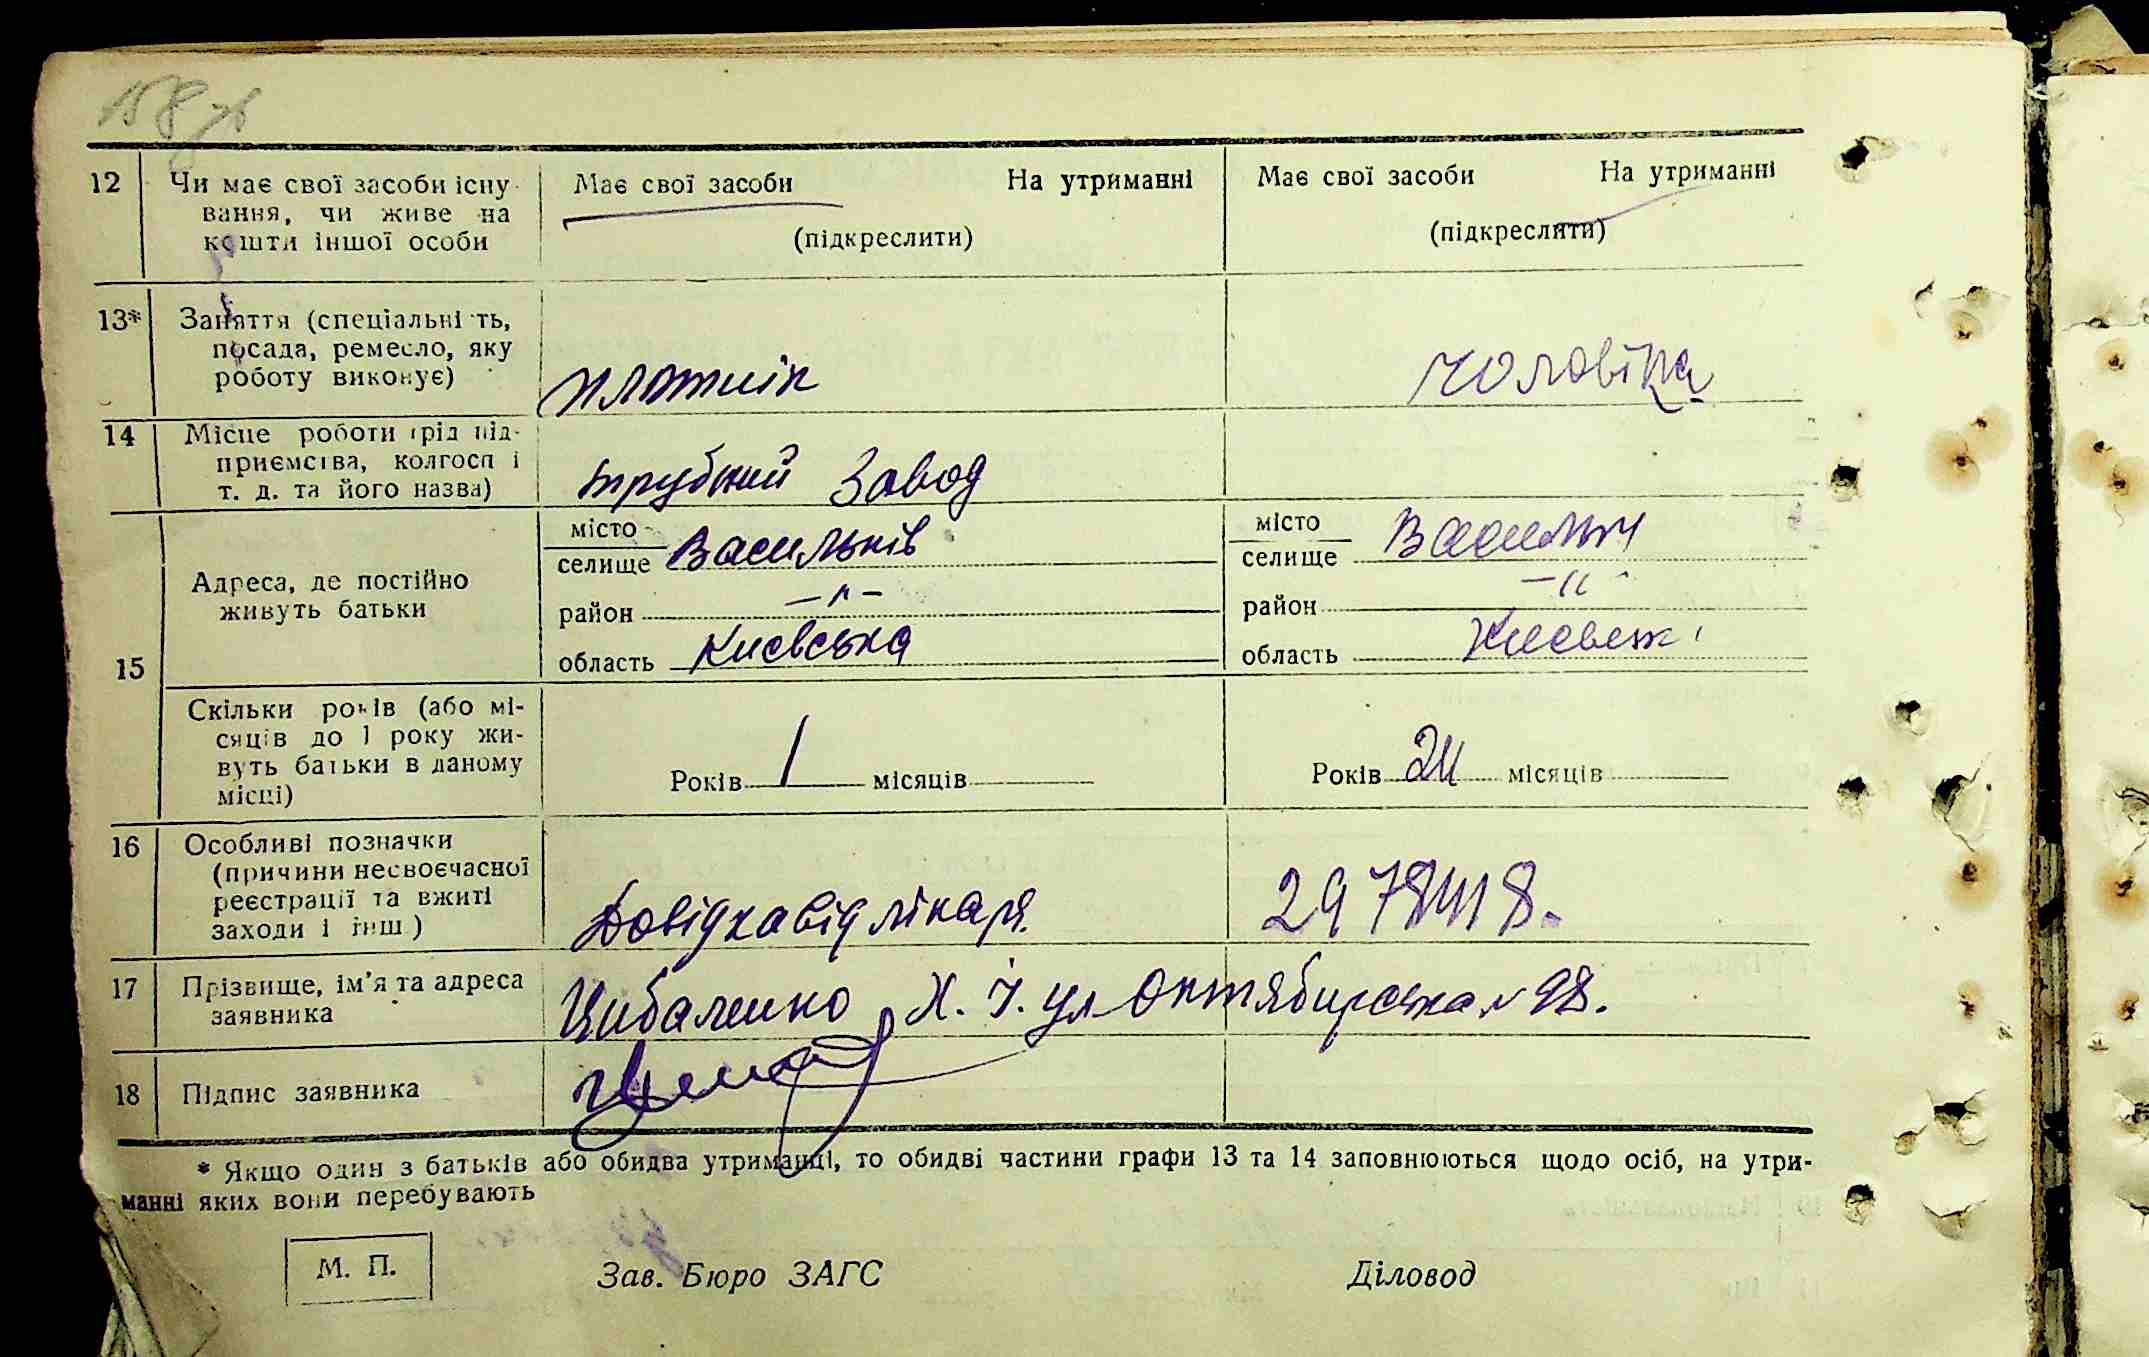 158 зв
12 Чи має свої засоби існу- Має свої засоби На утриманні Має свої засоби На утриманні
вання, чи живе на
кошти іншої особи (підкреслити) (підкреслити)
13* Заняття (спеціальні ть,
посада, ремесло, яку
роботу виконує) плотнік чоловіка
14 Місце роботи (рід під-
приємства, колгосп і
т. д. та його назва) трубний завод
15 Адреса, де постійно
живуть батьки
місто Васильків місто
селище селище
район -"- район -"-
область Києвська область
Скільки років (або мі-
сяців до 1 року жи-
вуть батьки в даному
місці) Років 1 місяців Років 24 місяців
16 Особливі позначки
(причини несвоєчасної
реєстрації та вжиті
заходи і інш.) Довідка від лікаря.
17 Прізвище, ім'я та адреса
заявника Цибаленко Х. І. ул Октябирська № 98.
18 Підпис заявника
* Якщо один з батьків або обидва утриманці, то обидві частини графи 13 та 14 заповнюються щодо осіб, на утри-
манні яких вони перебувають
М. П. Зав. Бюро ЗАГС Діловод